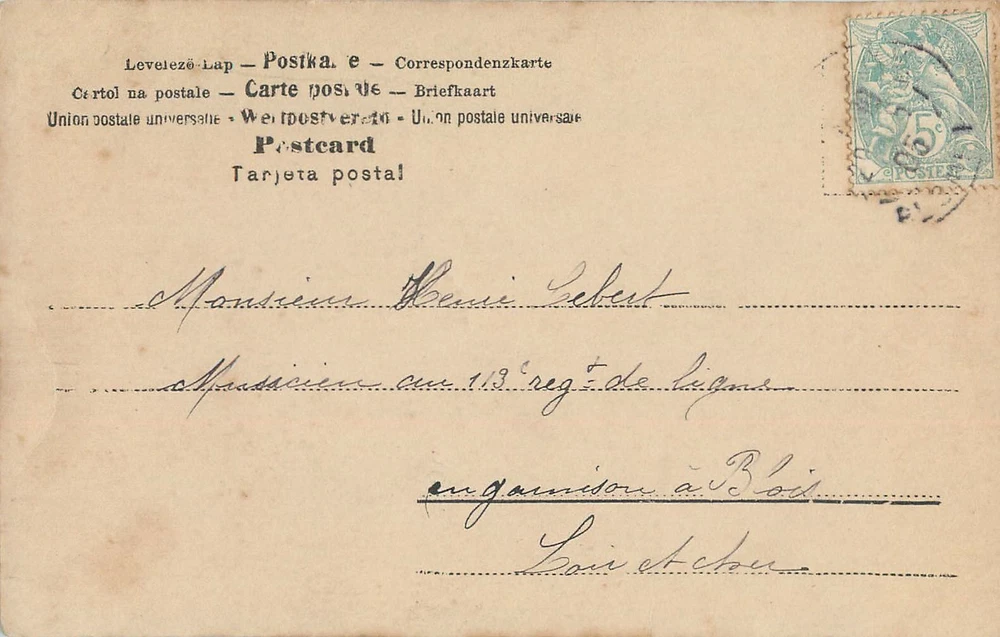 Levelező-Lap — Postkarte — Correspondenzkarte
Cartolina postale — Carte postale — Briefkaart
Union postale universelle - Weltpostverein - Union postale universale
Postcard
Tarjeta postal
5c
POSTES
Monsieur Henri Lebert
Musicien au 113e regt de ligne
en garnison à Blois
Loir et Cher